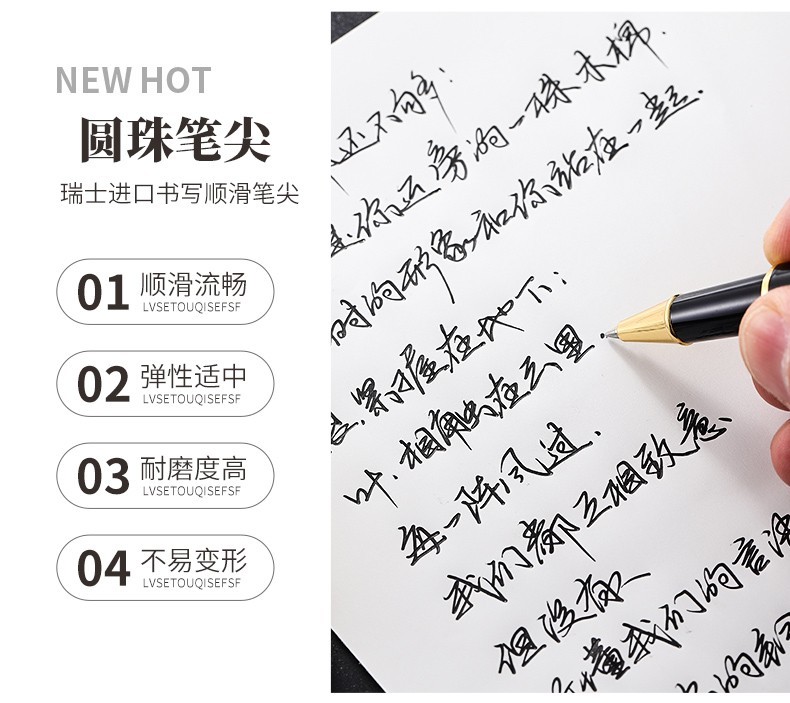 NEW HOT
圆珠笔尖
瑞士进口书写顺滑笔尖
01 顺滑流畅
LVSETOUQISEFSF
02 弹性适中
LVSETOUQISEFSF
03 耐磨度高
LVSETOUQISEFSF
04 不易变形
LVSETOUQISEFSF
还不够多:
你近旁的一株木棉.
时的形象和你站在一起.
紧握在地下;
叶.相触在云里.
每一阵风过.
我们都互相致意
但没有人
懂我们的言语